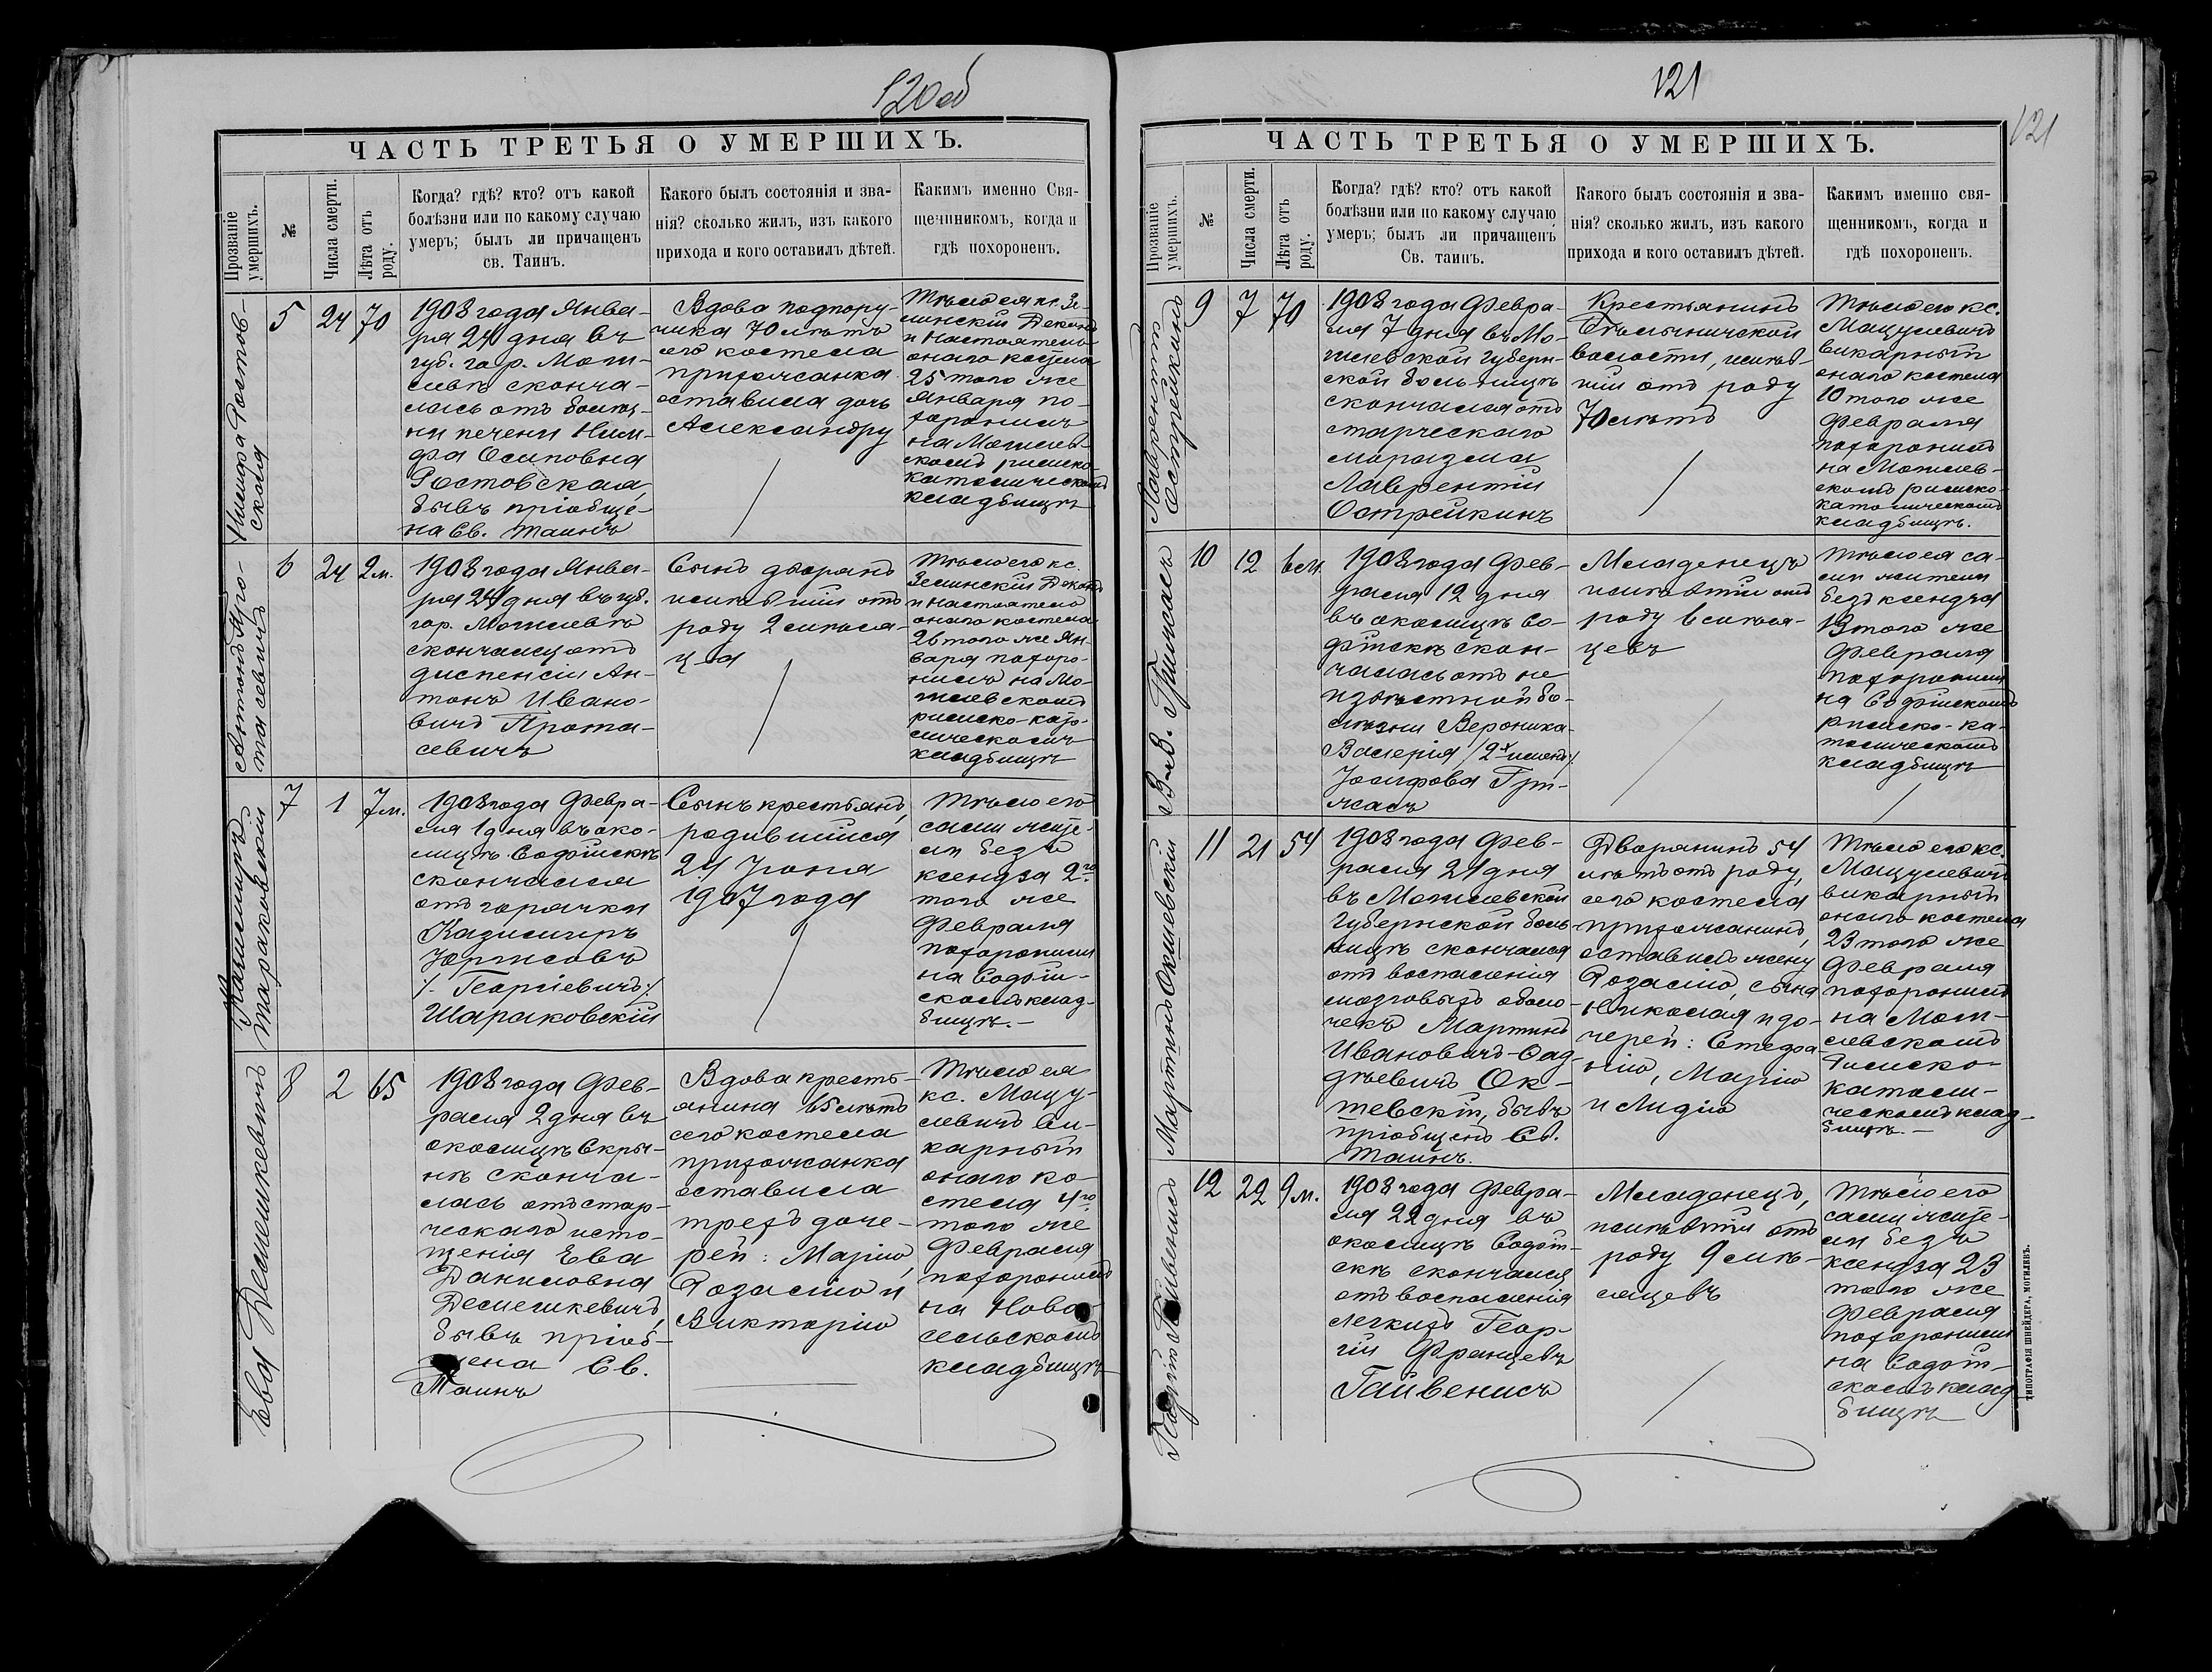 120об
ЧАСТЬ ТРЕТЬЯ О УМЕРШИХЪ.
Прозваніе умершихъ.
№
Числа смерти.
Лѣта отъ роду.
Когда? гдѣ? кто? отъ какой
болѣзни или по какому случаю
умеръ; былъ ли причащенъ
св. Таинъ.
Какого былъ состоянія и зва-
нія? сколько жилъ, изъ какого
прихода и кого оставилъ дѣтей.
Какимъ именно Свя-
щенникомъ, когда и
гдѣ похороненъ.
Нимфа Ростов-
ская
5
24
70
1908 года Янва-
ря 24 дня въ
губ. гор. Моги-
левѣ сконча-
лась отъ болѣз-
ни печени Ним-
фа Осиповна
Ростовская,
бывъ пріобще-
на Св. Таинъ
Вдова подпору-
чика 70 лѣтъ
его костела
прихожанка
оставила дочь
Александру
Тѣло ея кс. Зе
линскій Деканъ
и Настоятель
онаго костела
25 того же
Января по-
хоронилъ
на Могилев-
скомъ римско-
католическомъ
кладбищѣ
Антонъ Про-
тасевичъ
6
24
2 м.
1908 года Янва-
ря 24 дня въ губ.
гор. Могилевѣ
скончался отъ
диспенсіи Ан-
тонъ Ивано-
вичъ Прота-
севичъ
Сынъ дворянъ
имѣвшій отъ
роду 2 мѣся-
ца
Тѣло его кс.
Зелинскій Деканъ
и Настоятель
онаго костела
26 того же Ян-
варя похоро-
нилъ на Мо-
гилевскомъ
римско-като-
лическомъ
кладбищѣ
Казимиръ
Шараковскій
7
1
7 м.
1908 года Февра-
ля 1 дня въ око-
лицѣ Софійскѣ
скончался
отъ горячки
Казимиръ
Юрисовъ
/. Георгіевичъ ./
Шараковскій
Сынъ крестьянъ,
родившійся
24 Іюня
1907 года
Тѣло его
сами жите-
ли безъ
ксендза 2го
того же
Февраля
похоронили
на Софій-
скомъ клад-
бищѣ.—
Ева Демешкевичъ
8
2
65
1908 года Фев-
раля 2 дня въ
околицѣ Скры-
нѣ сконча-
лась отъ стар-
ческаго исто-
щенія Ева
Даниловна
Демешкевичъ,
бывъ пріоб-
щена Св.
Таинъ
Вдова кресть-
янина 65 лѣтъ
сего костела
прихожанка
оставила
трехъ доче-
рей: Марію,
Розалію и
Викторію
Тѣло ея
кс. Мацу-
левичъ Ви-
карный
онаго ко-
стела 4го
того же
Февраля
похоронилъ
на Ново-
сельскомъ
кладбищѣ
121
121
ЧАСТЬ ТРЕТЬЯ О УМЕРШИХЪ.
Прозваніе умершихъ.
№
Числа смерти.
Лѣта отъ роду.
Когда? гдѣ? кто? отъ какой
болѣзни или по какому случаю
умеръ; былъ ли причащенъ
Св. таинъ.
Какого былъ состоянія и зва-
нія? сколько жилъ, изъ какого
прихода и кого оставилъ дѣтей.
Какимъ именно свя-
щенникомъ, когда и
гдѣ похороненъ.
Лаврентій
Острейкинъ
9
7
70
1908 года Февра-
ля 7 дня въ Мо-
гилевской губерн-
ской больницѣ
скончался отъ
старческаго
маразма
Лаврентій
Острейкинъ
Крестьянинъ
Бѣлыничской
волости, имѣв-
шій отъ роду
70 лѣтъ
Тѣло его кс.
Мацулевичъ
викарный
онаго костела
10 того же
Февраля
похоронилъ
на Могилев-
скомъ римско-
католическомъ
кладбищѣ.
В.-В. Грижасъ
10
12
6 м.
1908 года Фев-
раля 12 дня
въ околицѣ Со-
фійскѣ скон-
чалась отъ не
извѣстной бо-
лѣзни Вероника-
Валерія /2х именъ/
Іосифова Гри-
жасъ
Младенецъ
имѣвшій отъ
роду 6 мѣся-
цевъ
Тѣло ея са-
ми жители
безъ ксендза
13 того же
Февраля
похоронили
на Софійскомъ
римско-ка-
толическомъ
кладбищѣ
Мартинъ Окшевскій
11
21
54
1908 года Фев-
раля 21 дня
въ Могилевской
Губернской боль-
ницѣ скончался
отъ воспаленія
мозговыхъ оболо-
чекъ Мартинъ
Ивановичъ-Фад-
дѣевичъ Ок-
шевскій, бывъ
пріобщенъ Св.
Таинъ.
Дворянинъ 54
лѣтъ отъ роду,
сего костела
прихожанинъ,
оставилъ жену
Розалію, сына
Николая и до-
черей: Стефа-
нію, Марію
и Лидію
Тѣло его кс.
Мацулевичъ
викарный
онаго костела
23 того же
Февраля
похоронилъ
на Моги-
левскомъ
Римско-
католи-
ческомъ клад-
бищѣ.—
Георгій Гайвенисъ
12
22
9 м.
1908 года Февра-
ля 22 дня въ
околицѣ Софій-
скѣ скончался
отъ воспаленія
легкихъ Геор-
гій Францевъ
Гайвенисъ
Младенецъ,
имѣвшій отъ
роду 9 мѣ-
сяцевъ
Тѣло его
сами жите-
ли безъ
ксендза 23
того же
Февраля
похоронили
на Софій-
скомъ клад-
бищѣ
ТИПОГРАФІЯ ШНЕЙДЕРА, МОГИЛЕВЪ.